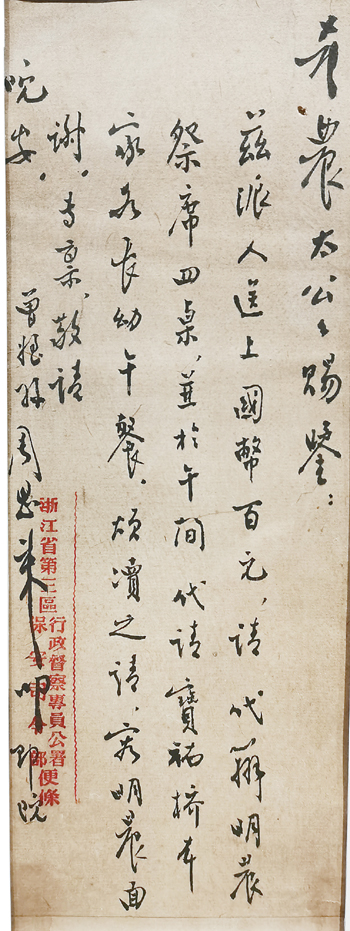 希農太公々賜鑒：
茲派人送上國幣百元，請代辦明晨
祭席四桌，並於午間代請寶祐橋本
家各長幼午餐。煩瀆之請，容明晨面
謝。專稟，敬請
晚安。
曾姪孫周恩來叩 即晚
浙江省第三區
行政督察專員公署
保安司令部
便條